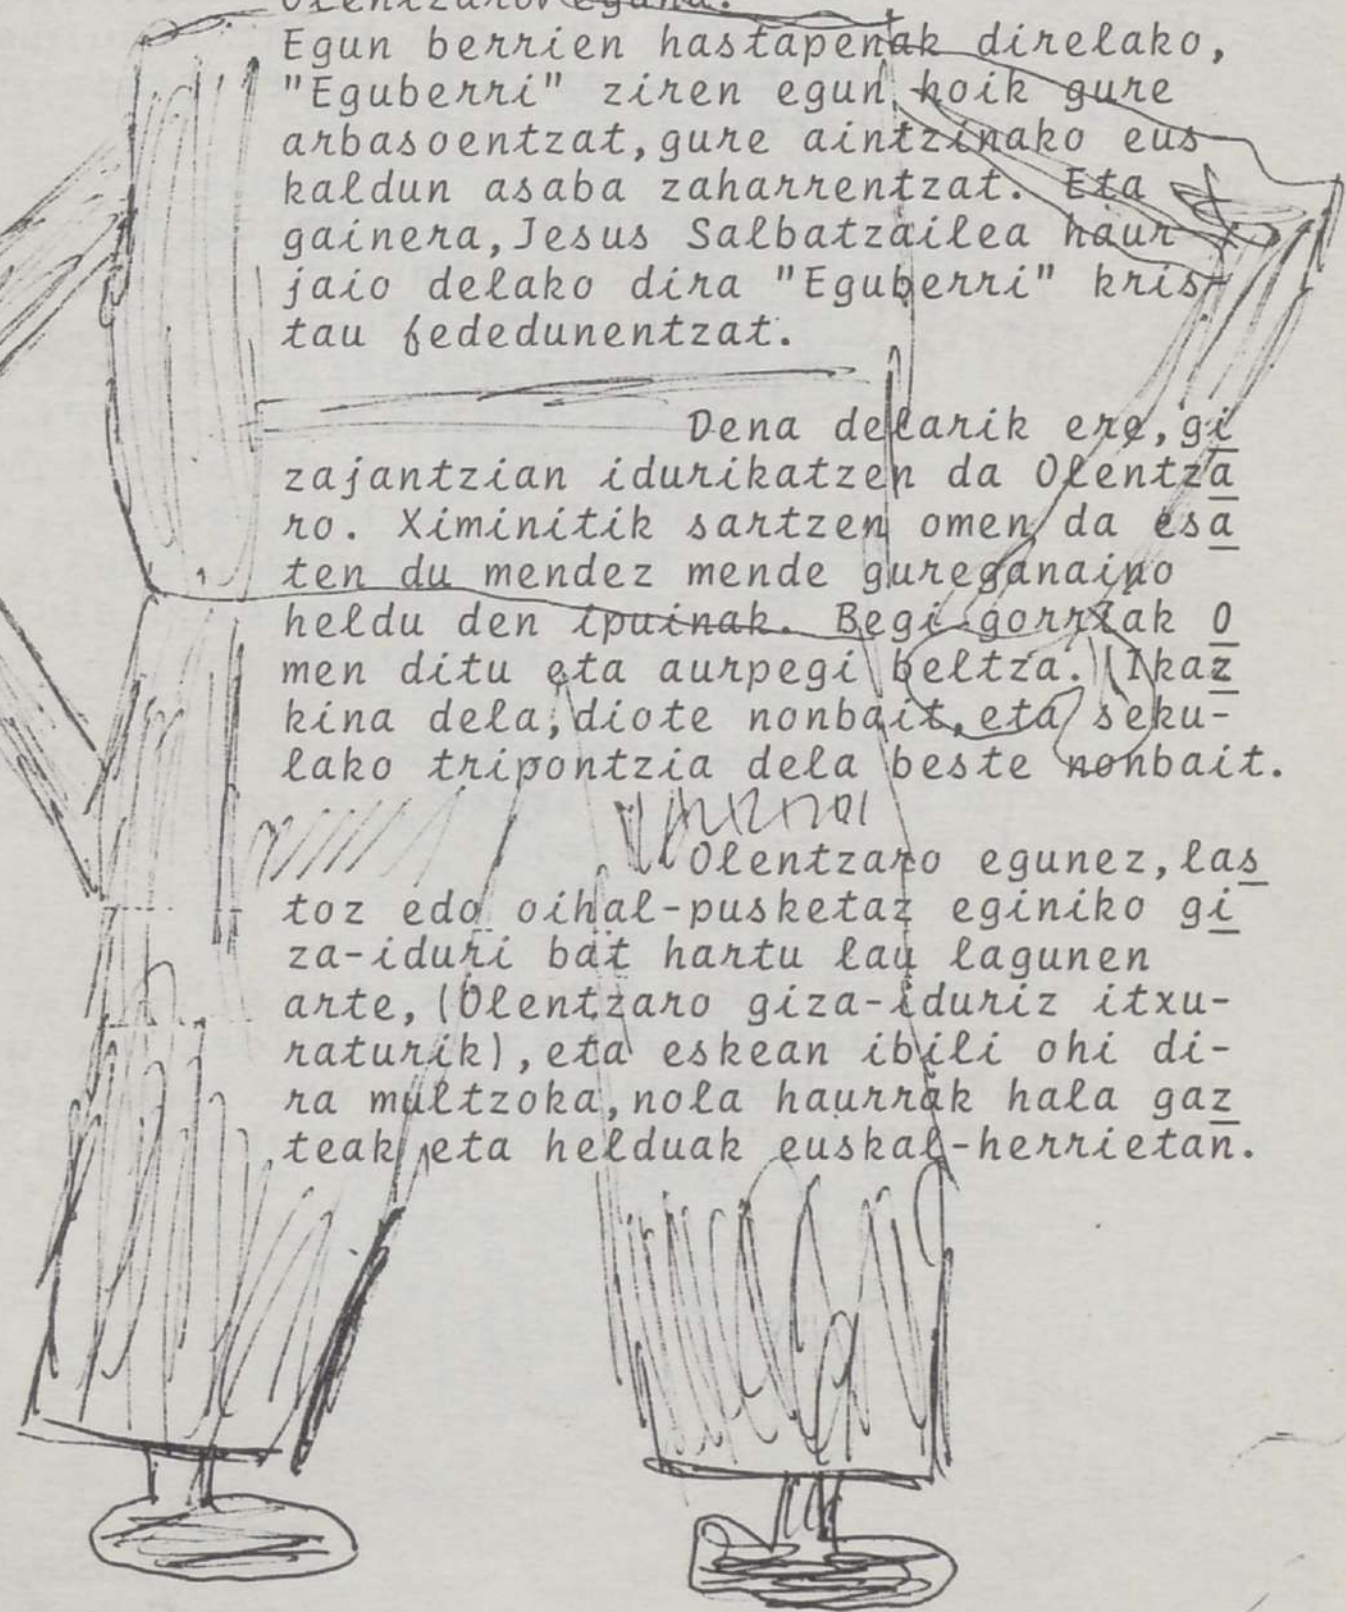 Olentzaro. eguna.
Egun berrien hastapenak direlako,
"Eguberri" ziren egun hoik gure
arbasoentzat, gure aintzinako eus
kaldun asaba zaharrentzat. Eta
gainera, Jesus Salbatzailea haur
jaio delako dira "Eguberri" kris-
tau fededunentzat.
Dena delarik ere, gi
zajantzian idurikatzen da Olentza
ro. Ximinitik sartzen omen da esa
ten du mendez mende gureganaino
heldu den ipuinak. Begi gorriak o
men ditu eta aurpegi beltza. (Ikaz
kina dela, diote nonbait, eta seku-
lako tripontzia dela beste nonbait.
Olentzaro egunez, las
toz edo oihal-pusketaz eginiko gi
za-iduri bat hartu lau lagunen
arte, (Olentzaro giza-iduriz itxu-
raturik), eta eskean ibili ohi di-
ra multzoka, nola haurrak hala gaz
teak eta helduak euskal-herrietan.